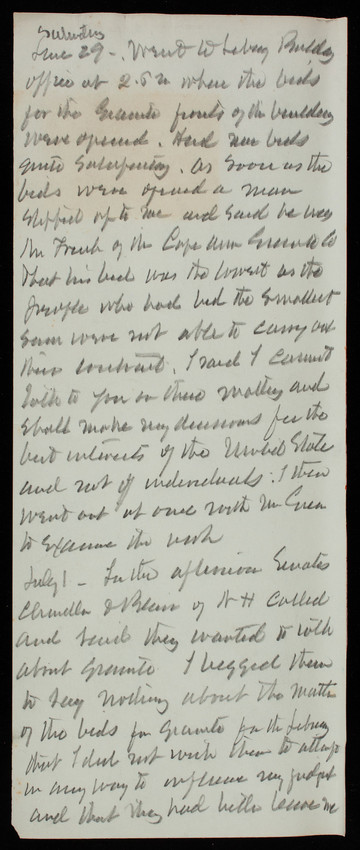 Saturday
June 29 -. Went to Library Building
office at 2.5 m when the bids
for the Granite fronts of the building
were opened. Had nine bids
quite satisfactory. As soon as the
bids were opened a man
stepped up to me and said he was
Mr French of the Cape Ann Granite Co
that his bid was the lowest as the
people who had bid the smallest
sum were not able to carry out
their contract. I said I cannot
talk to you on these matters and
shall make my decisions for the
best interests of the United States
and not of individuals. I then
went out at once with Mr Green
to examine the work
July 1 - In the afternoon Senators
Chandler & Blair of N H called
and said they wanted to talk
about granite I begged them
to say nothing about the matter
of the bids for granite for the Library
that I did not wish them to attempt
in any way to influence my judgt
and that they had better leave me